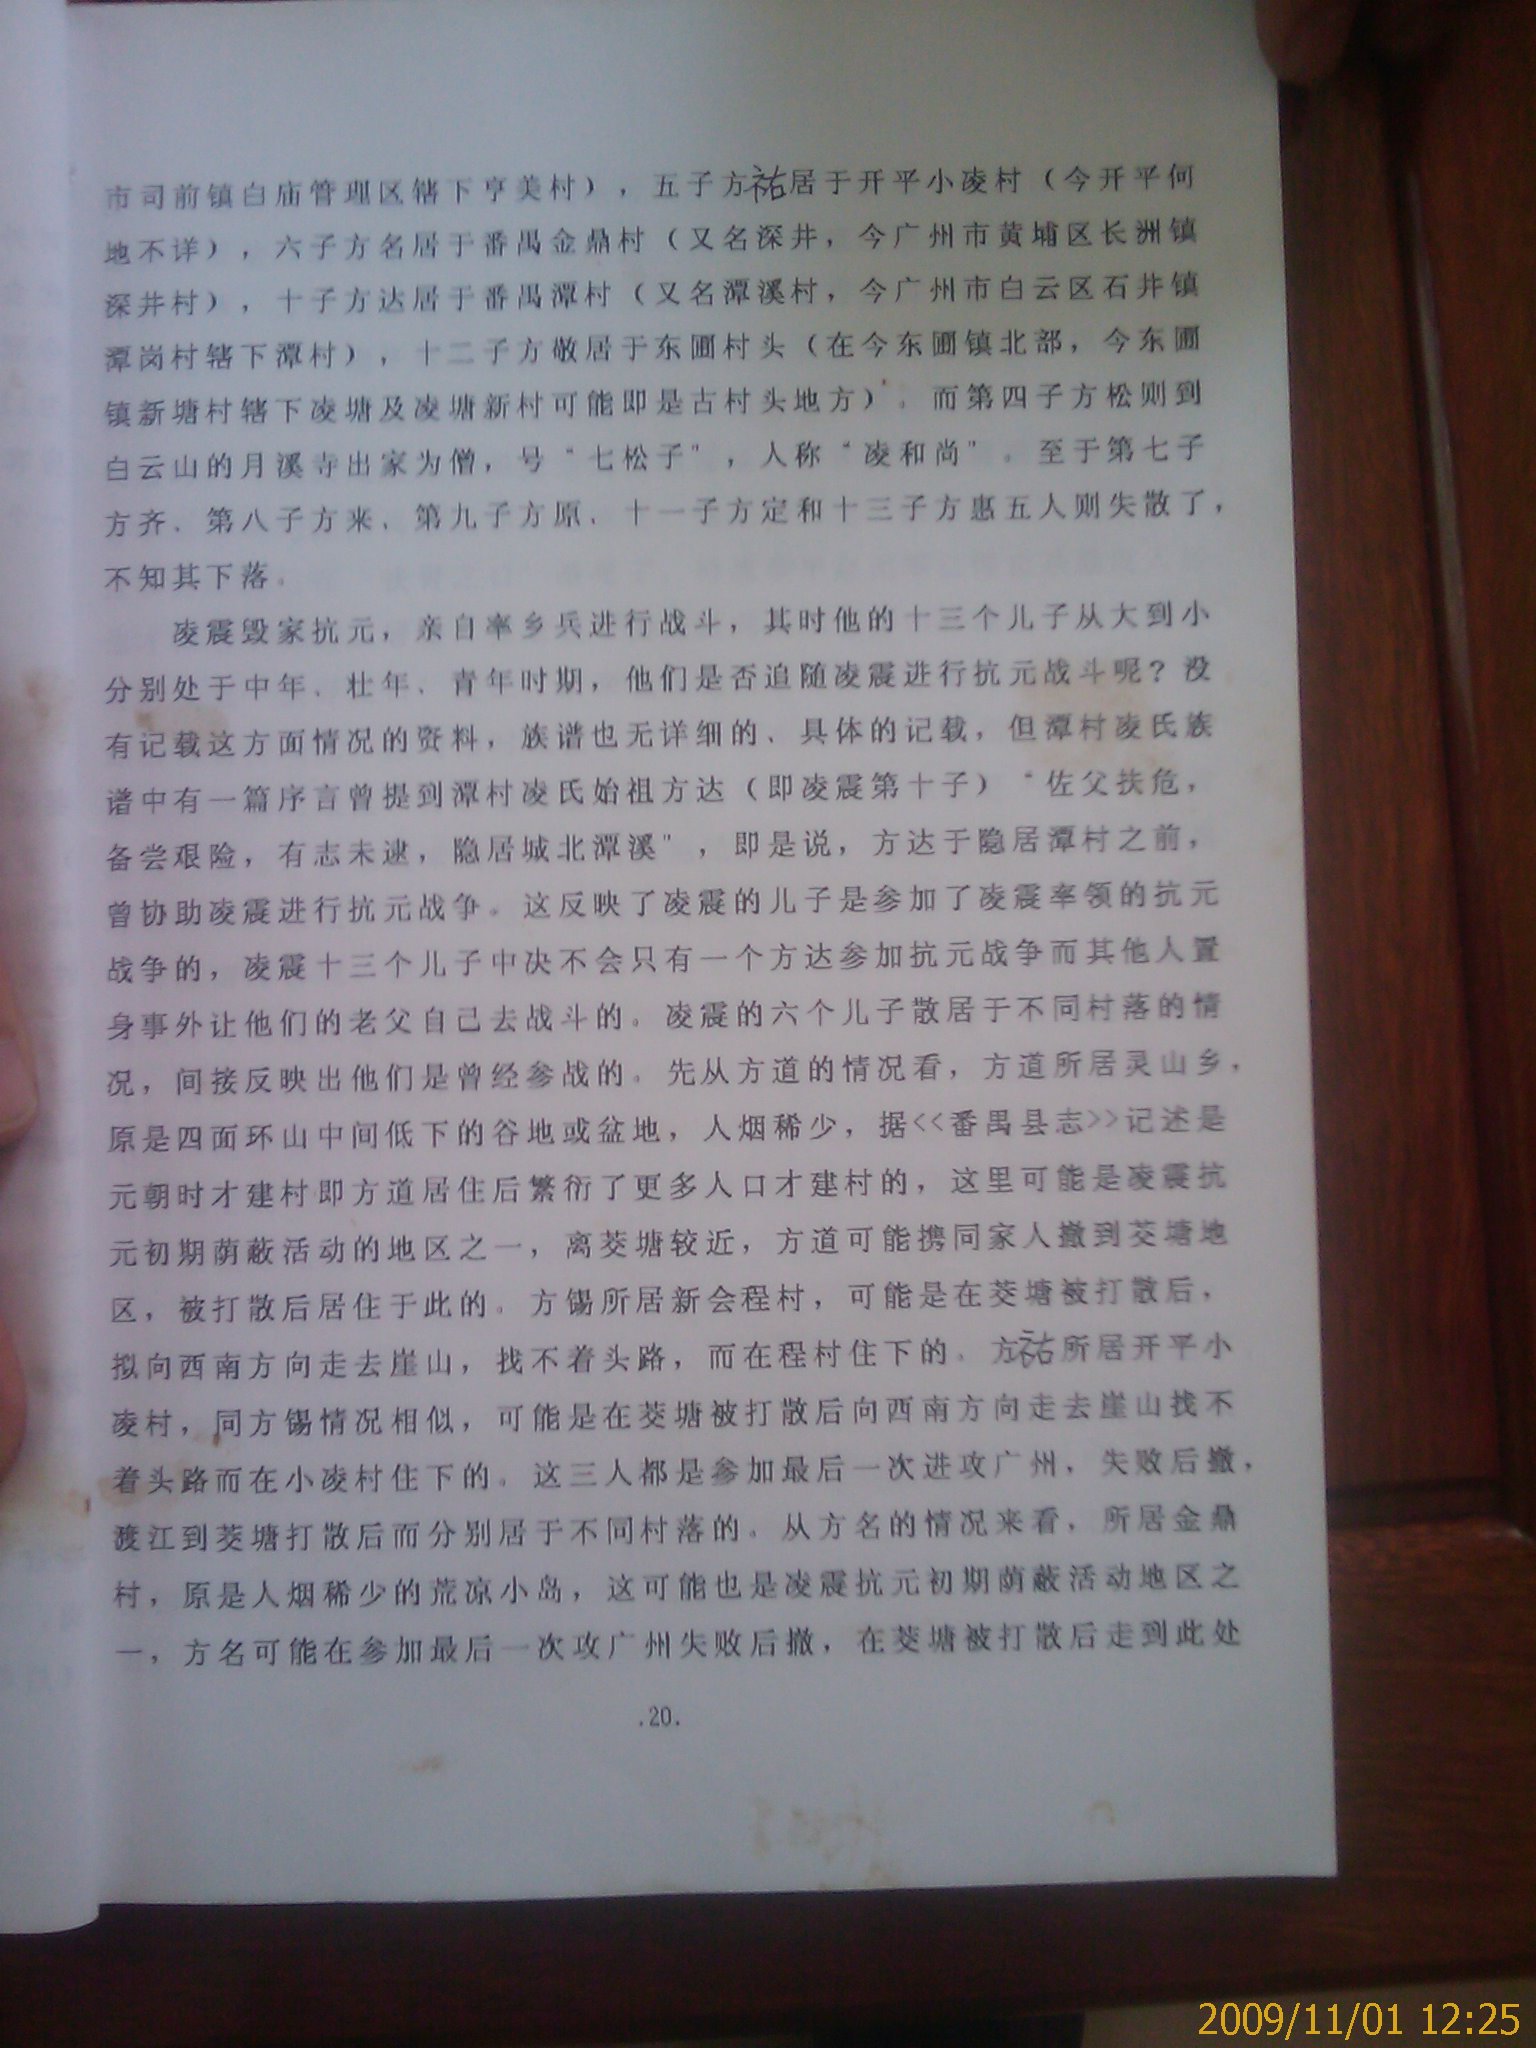 市司前镇白庙管理区辖下亨美村），五子方祐居于开平小凌村（今开平何
地不详），六子方名居于番禺金鼎村（又名深井，今广州市黄埔区长洲镇
深井村），十子方达居于番禺潭村（又名潭溪村，今广州市白云区石井镇
潭岗村辖下潭村），十二子方敬居于东圃村头（在今东圃镇北部，今东圃
镇新塘村辖下凌塘及凌塘新村可能即是古村头地方）。而第四子方松则到
白云山的月溪寺出家为僧，号“七松子”，人称“凌和尚”。至于第七子
方齐、第八子方来、第九子方原、十一子方定和十三子方惠五人则失散了，
不知其下落。
凌震毁家抗元，亲自率乡兵进行战斗，其时他的十三个儿子从大到小
分别处于中年、壮年、青年时期，他们是否追随凌震进行抗元战斗呢？没
有记载这方面情况的资料，族谱也无详细的、具体的记载，但潭村凌氏族
谱中有一篇序言曾提到潭村凌氏始祖方达（即凌震第十子）“佐父扶危，
备尝艰险，有志未逮，隐居城北潭溪”，即是说，方达于隐居潭村之前，
曾协助凌震进行抗元战争。这反映了凌震的儿子是参加了凌震率领的抗元
战争的，凌震十三个儿子中决不会只有一个方达参加抗元战争而其他人置
身事外让他们的老父自己去战斗的。凌震的六个儿子散居于不同村落的情
况，间接反映出他们是曾经参战的。先从方道的情况看，方道所居灵山乡，
原是四面环山中间低下的谷地或盆地，人烟稀少，据<<番禺县志>>记述是
元朝时才建村即方道居住后繁衍了更多人口才建村的，这里可能是凌震抗
元初期荫蔽活动的地区之一，离茭塘较近，方道可能携同家人撤到茭塘地
区，被打散后居住于此的。方锡所居新会程村，可能是在茭塘被打散后，
拟向西南方向走去崖山，找不着头路，而在程村住下的。方祐所居开平小
凌村，同方锡情况相似，可能是在茭塘被打散后向西南方向走去崖山找不
着头路而在小凌村住下的。这三人都是参加最后一次进攻广州，失败后撤，
渡江到茭塘打散后而分别居于不同村落的。从方名的情况来看，所居金鼎
村，原是人烟稀少的荒凉小岛，这可能也是凌震抗元初期荫蔽活动地区之
一，方名可能在参加最后一次攻广州失败后撤，在茭塘被打散后走到此处
.20.
2009/11/01 12:25